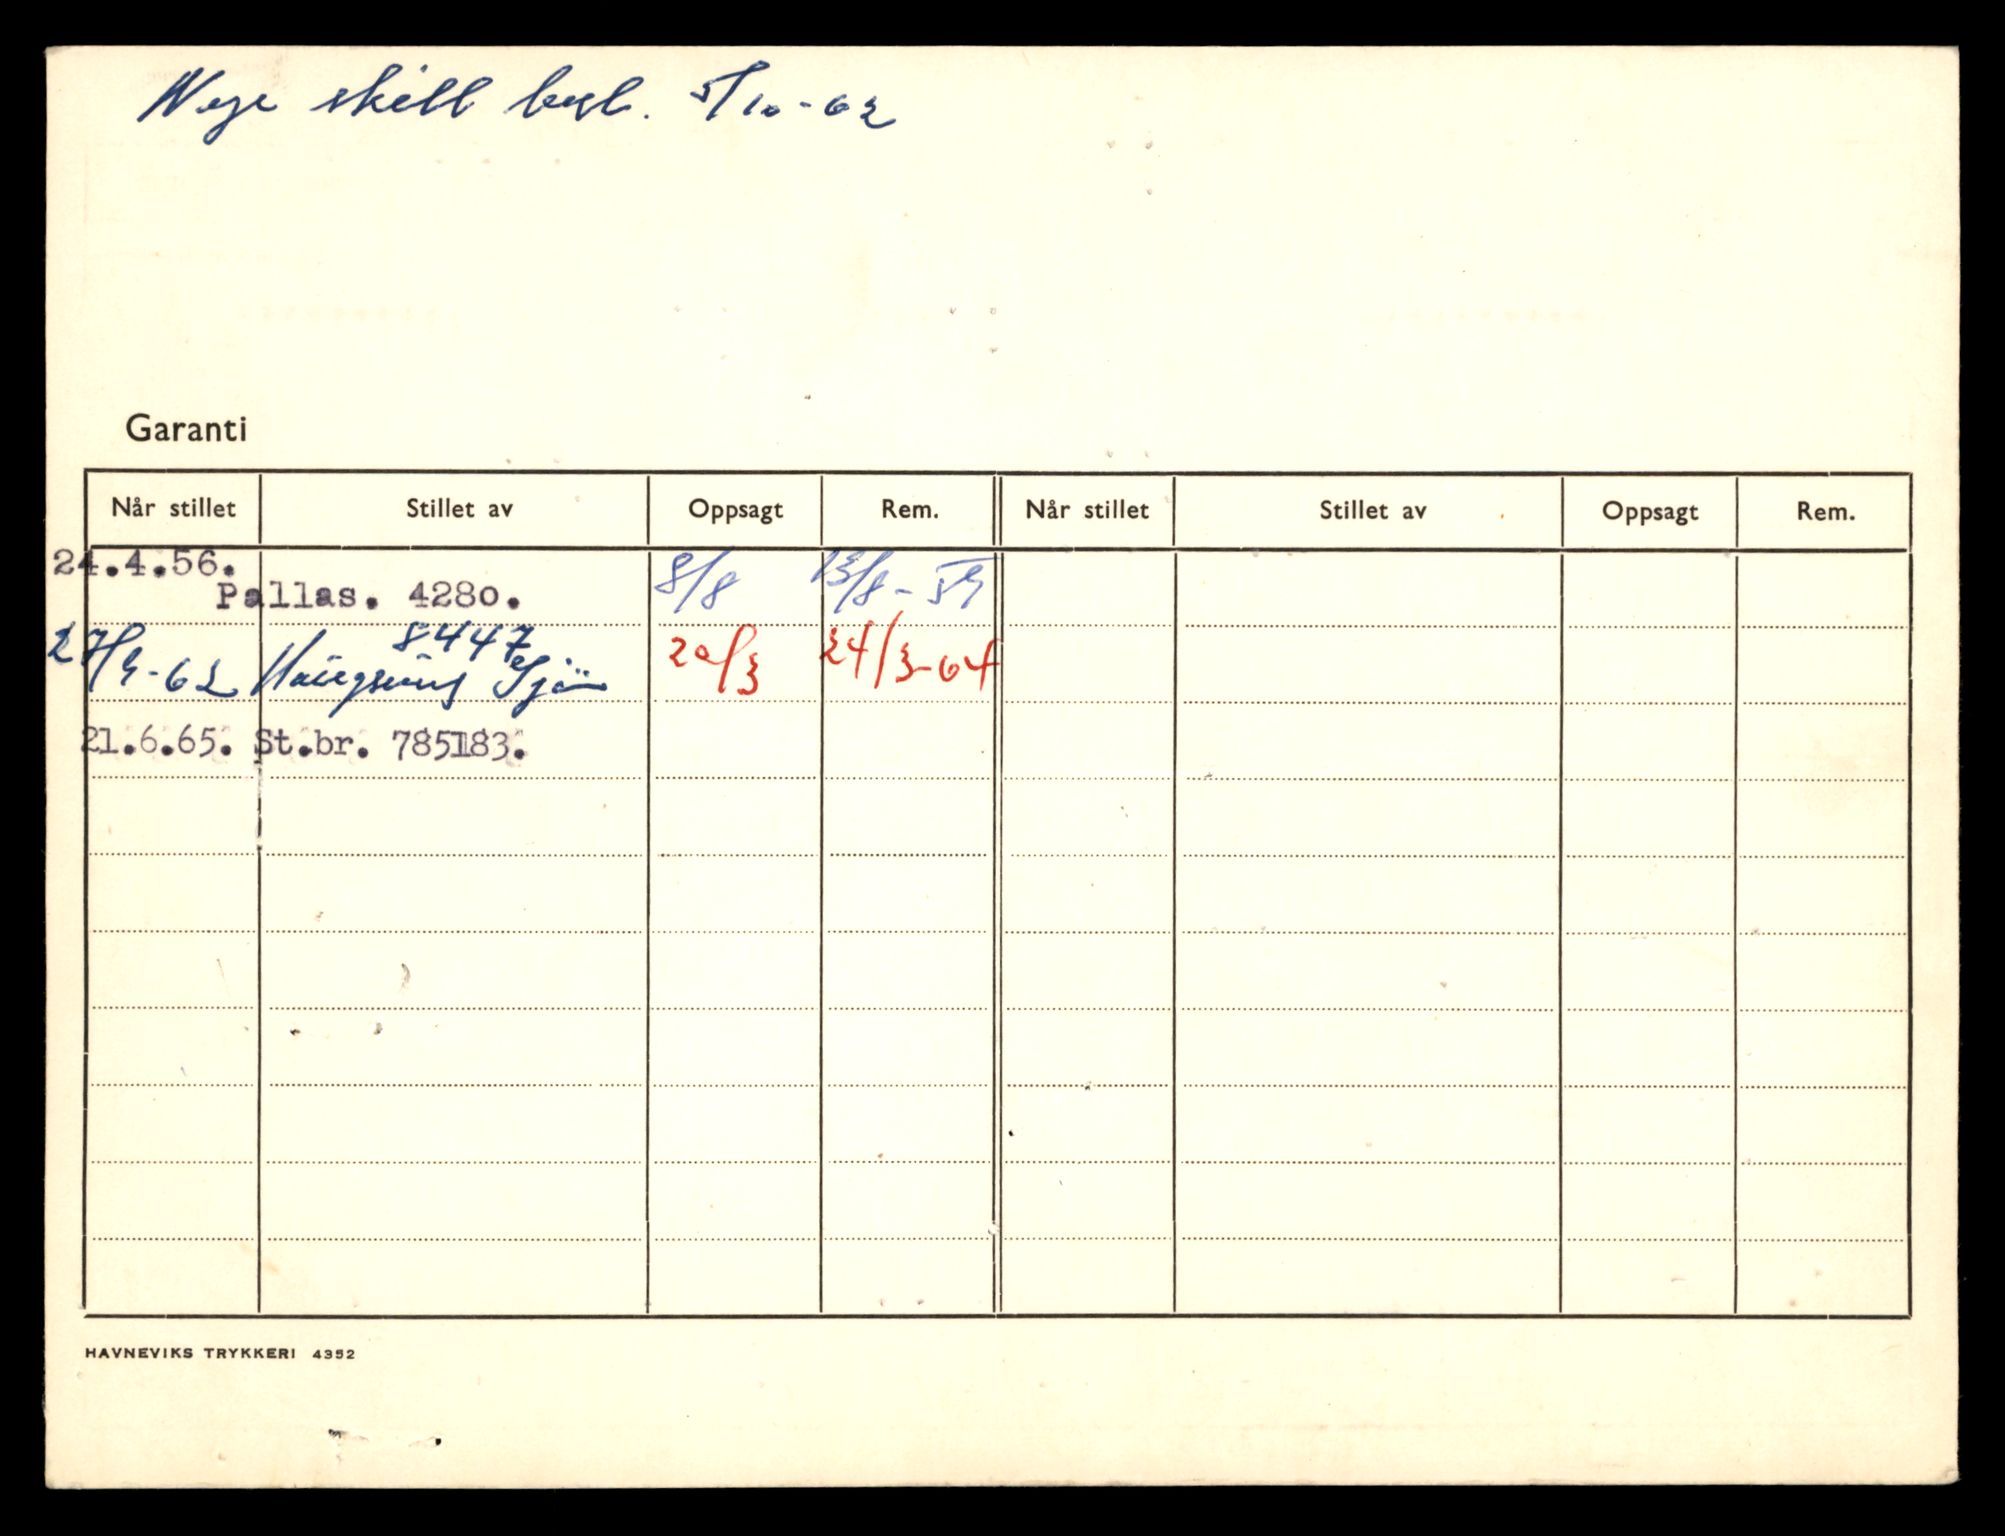 Nye skilt best. 5/10-62
Garanti
Når stillet Stillet av Oppsagt Rem. Når stillet Stillet av Oppsagt Rem.
24.4.56. 8/8 13/8-59
Pallas. 4280.
8447
27/9-62 Sjø 20/3 24/3-64
21.6.65. St.br. 785183.
HAVNEVIKS TRYKKERI 4352